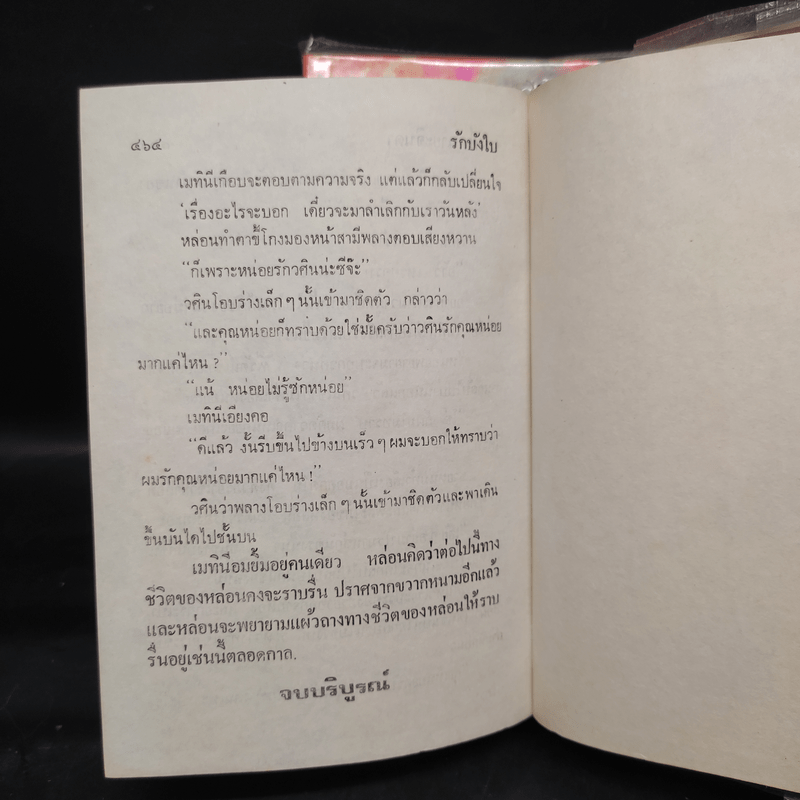 ๔๖๔ รักบังใบ
เมทินีเกือบจะตอบตามความจริง แต่แล้วก็กลับเปลี่ยนใจ
'เรื่องอะไรจะบอก เดี๋ยวจะมาลำเลิกกับเราวันหลัง'
หล่อนทำตาขี้โกงมองหน้าสามีพลางตอบเสียงหวาน
“ก็เพราะหน่อยรักวศินน่ะซีจ๊ะ”
วศินโอบร่างเล็ก ๆ นั้นเข้ามาชิดตัว กล่าวว่า
“และคุณหน่อยก็ทราบด้วยใช่มั้ยครับว่าวศินรักคุณหน่อย
มากแค่ไหน ?”
“แน้ หน่อยไม่รู้ซักหน่อย”
เมทินีเอียงคอ
“ดีแล้ว งั้นรีบขึ้นไปข้างบนเร็ว ๆ ผมจะบอกให้ทราบว่า
ผมรักคุณหน่อยมากแค่ไหน !”
วศินว่าพลางโอบร่างเล็ก ๆ นั้นเข้ามาชิดตัวและพาเดิน
ขึ้นบันไดไปชั้นบน
เมทินีอมยิ้มอยู่คนเดียว หล่อนคิดว่าต่อไปนี้ทาง
ชีวิตของหล่อนคงจะราบรื่น ปราศจากขวากหนามอีกแล้ว
และหล่อนจะพยายามแผ้วถางทางชีวิตของหล่อนให้ราบ
รื่นอยู่เช่นนี้ตลอดกาล.
จบบริบูรณ์